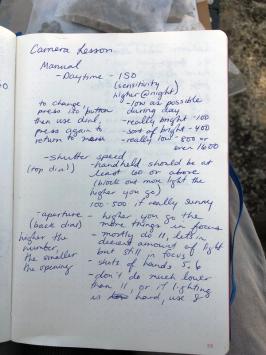 Camera Lesson
Manual
- Daytime - ISO
(sensitivity
higher @ night)
to change, - low as possible
press iso button during day
then use dial, - really bright - 100
press again to - sort of bright - 400
return to - really low - 800 or
even 1600
- shutter speed
(top dial) - handheld should be at
least 60 or above
(block out more light the
higher you go)
100-500 if really sunny
- aperture - higher you go the
(back dial) more things in focus
higher the - mostly do 11, lets in
number, decent amount of light
the smaller but still in focus
the opening - shots of hands 5.6
- don't do much lower
than 11, or if lighting
is hard, use 8